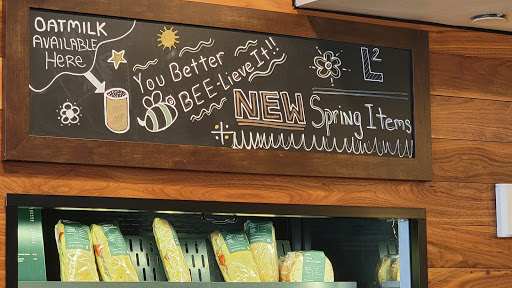 OATMILK
AVAILABLE
HERE
You Better
BEE-Lieve It!!
NEW Spring Items
L²